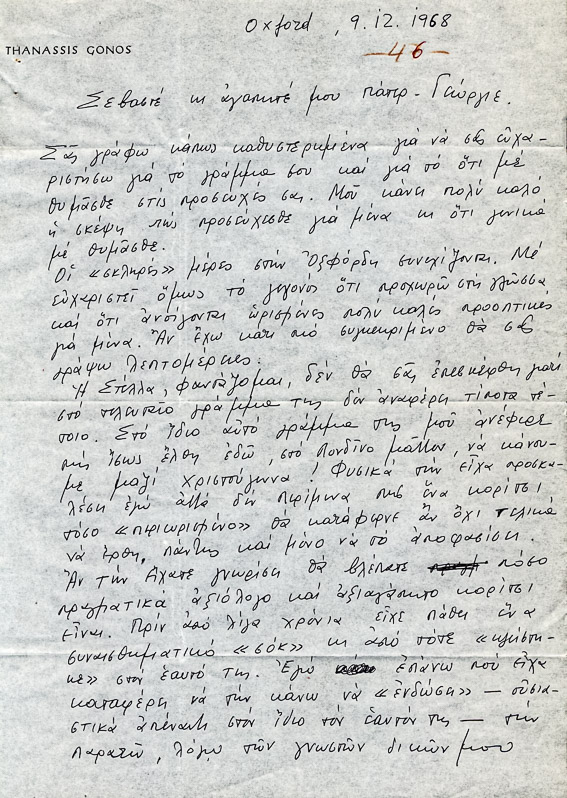 Oxford, 9.12.1968
THANASSIS GONOS
-46-
Σεβαστέ κι ἀγαπητέ μου πάτερ-Γεώργιε.
Σᾶς γράφω κάπως καθυστερημένα γιά νά σᾶς εὐχα-
ριστήσω γιά τό γράμμα σου καί γιά τό ὅτι μέ
θυμᾶσθε στίς προσευχές σας. Μοῦ κάνει πολύ καλό
ἡ σκέψη πώς προσεύχεσθε γιά μένα κι ὅτι γενικά
μέ θυμᾶσθε.
Οἱ «σκληρές» μέρες στήν Ὀξφόρδη συνεχίζονται. Μέ
εὐχαριστεῖ ὅμως τό γεγονός ὅτι προχωρῶ στή γλῶσσα
καί ὅτι ἀνοίγονται ὡρισμένες πολύ καλές προοπτικές
γιά μένα. Ἄν ἔχω κάτι πιό συγκεκριμένο θά σᾶς
γράψω λεπτομέρειες.
Ἡ Στέλλα, φαντάζομαι, δέν θά σᾶς ἐπεσκέφθη γιατί
στό τελευταῖο γράμμα της δέν ἀναφέρη τίποτα τέ-
ποιο. Στό ἴδιο αὐτό γράμμα της μοῦ ἀνέφερε
πώς ἴσως ἔλθη ἐδῶ, στό Λονδῖνο μᾶλλον, νά κάνου-
με μαζί Χριστούγεννα! Φυσικά τήν εἶχα προσκα-
λέση ἐγώ ἀλλά δέν περίμενα πώς ἕνα κορίτσι
τόσο «περιωρισμένο» θά κατάφερνε ἄν ὄχι τελικά
νά ἔρθη, πάντως καί μόνο νά τό ἀποφασίση.
Ἄν τήν εἴχατε γνωρίση θά βλέπατε πόσο
πραγματικά ἀξιόλογο καί ἀξιαγάπητο κορίτσι
εἶναι. Πρίν ἀπό λίγα χρόνια εἶχε πάθει ἕνα
συναισθηματικό «σόκ» κι ἀπό τότε «κλείστη-
κε» στόν ἑαυτό της. Ἐγώ ἐπάνω πού εἶχα
καταφέρη νά τήν κάνω νά «ἐνδώση» — οὐσια-
στικά ἀπέναντι στόν ἴδιο τόν ἑαυτόν της — τήν
παρατῶ, λόγω τῶν γνωστῶν δικῶν μου